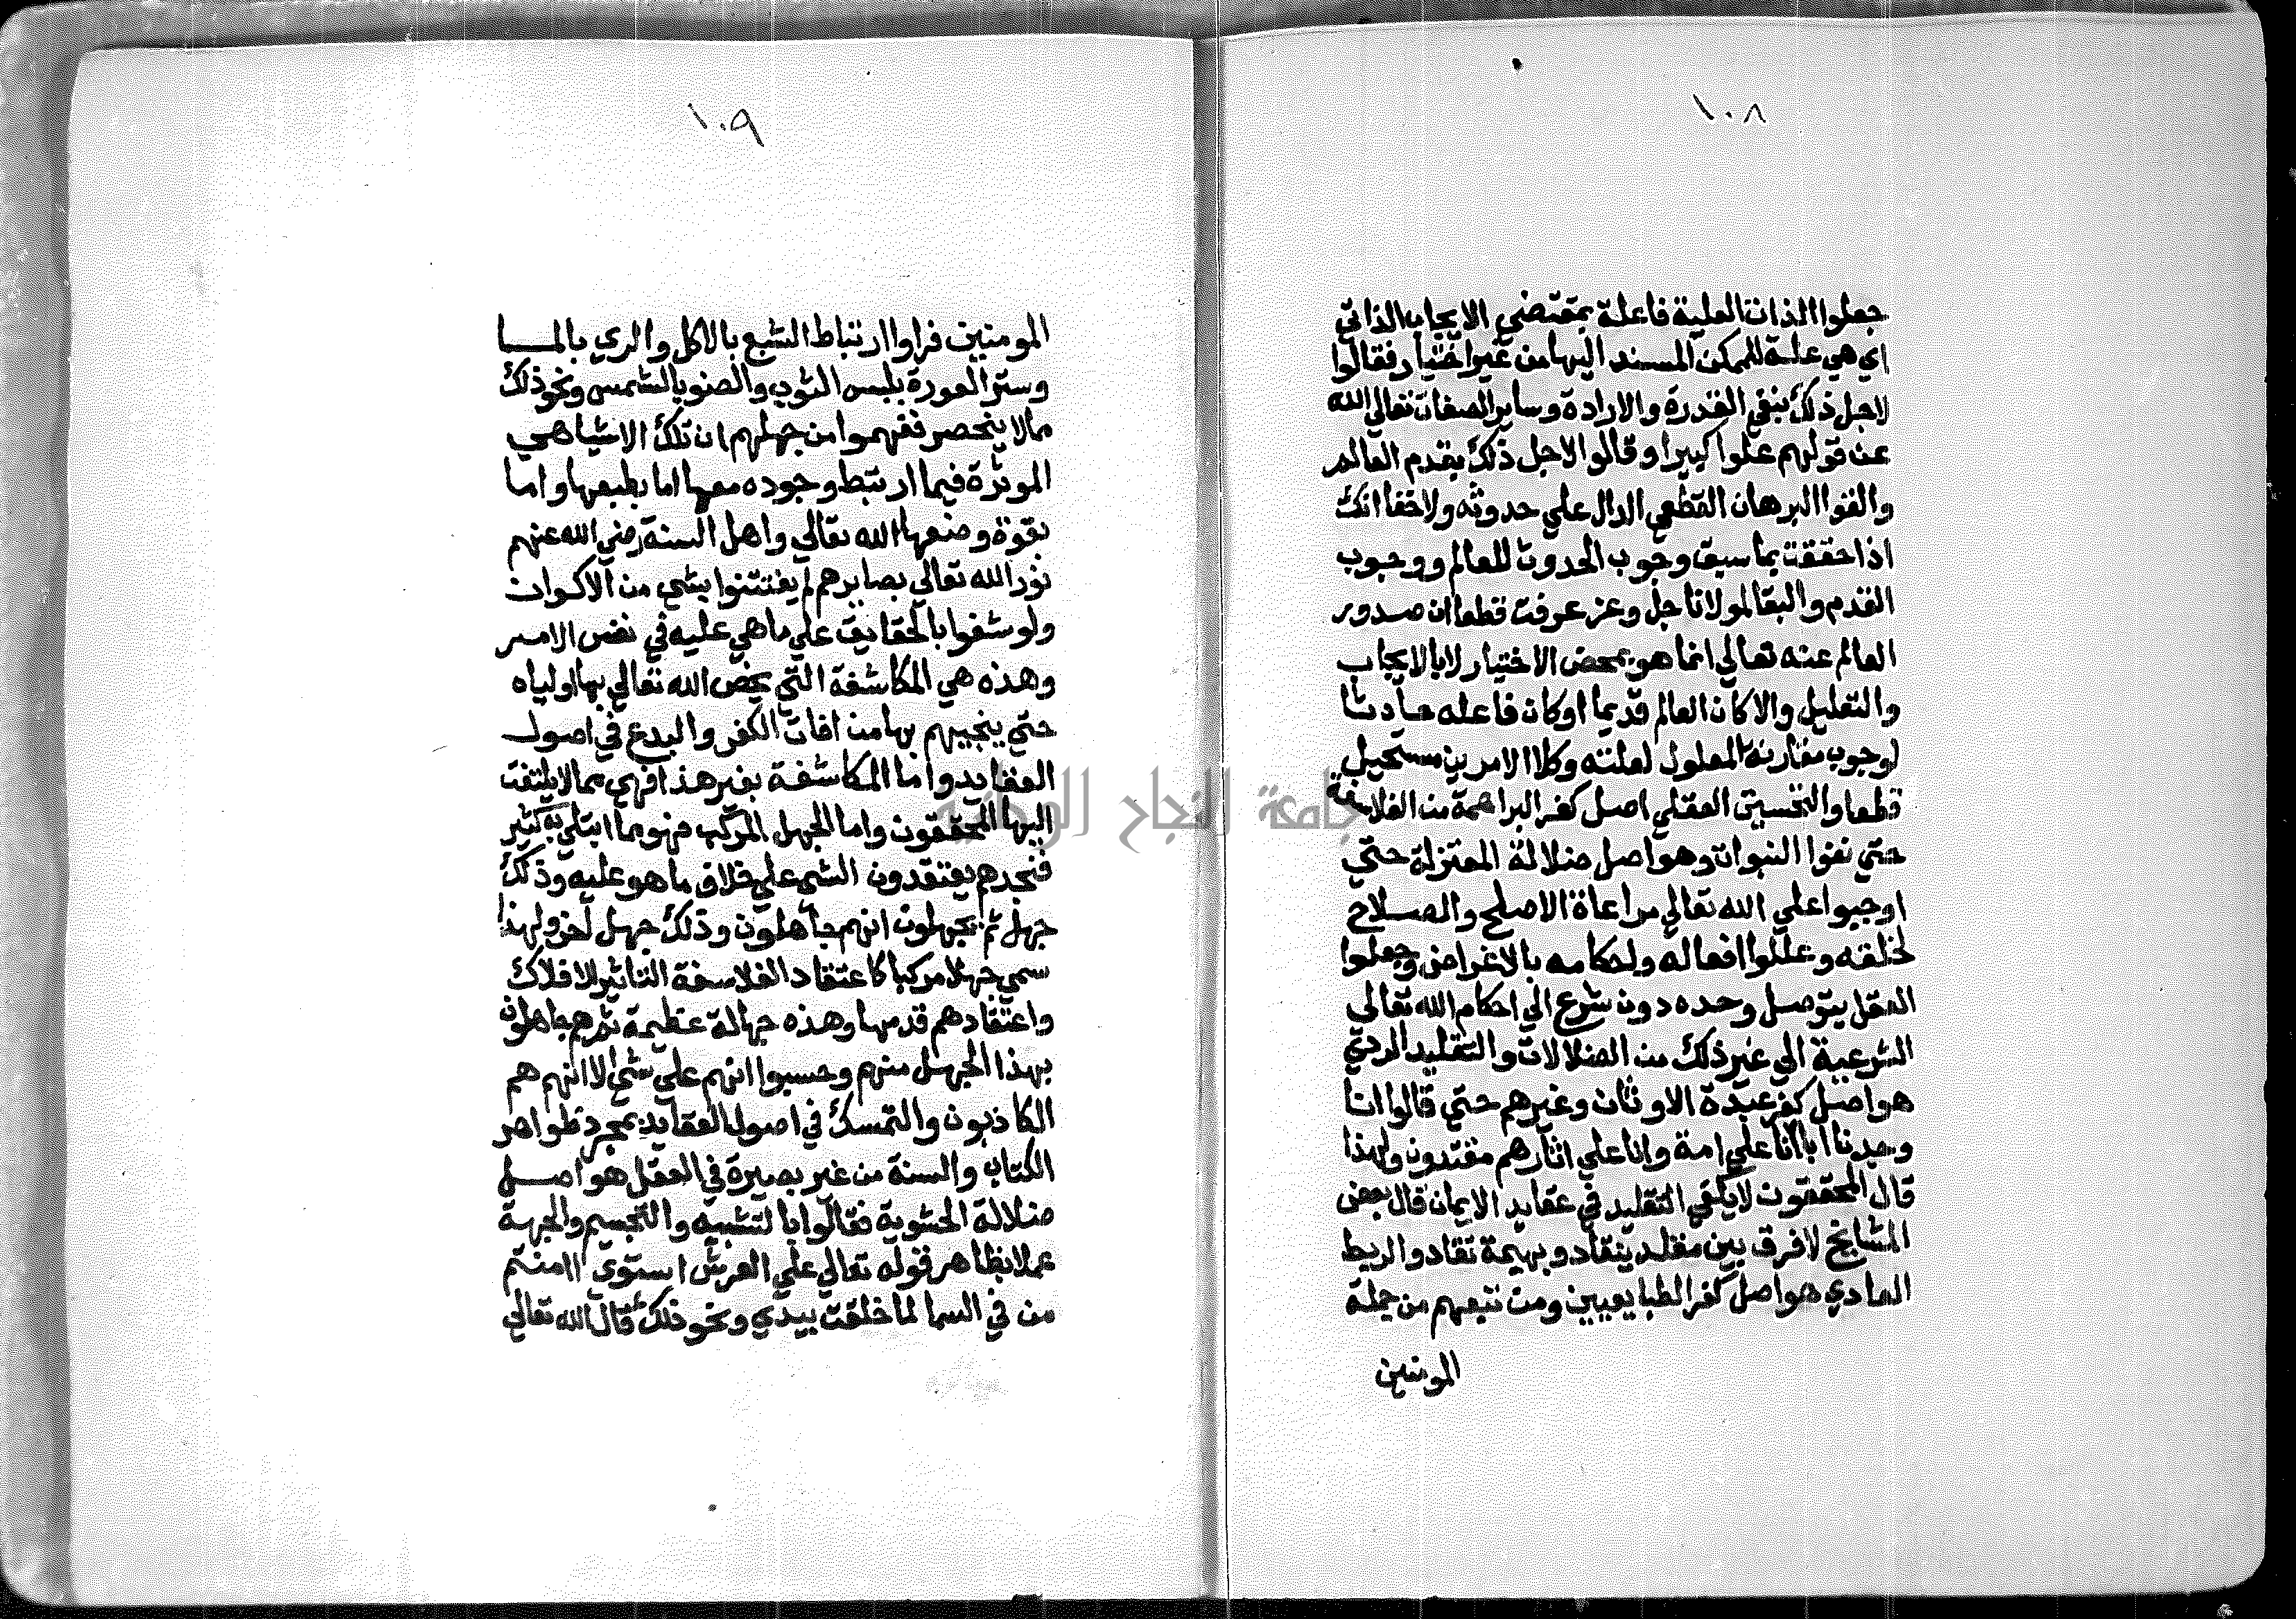 ١٠٨
جعلوا الذات العلية فاعلة بمقتضي الايجاب الذاتي
اي هي علة للممكن المسند اليها من غير اختيار فقالوا
لاجل ذلك بنفي القدرة والارادة وساير الصفات تعالي الله
عن قولهم علوا كبيرا وقالوا لاجل ذلك بقدم العالم
والغوا البرهان القطعي الدال علي حدوثه ولا خفا انك
اذا حققت بما سبق وجوب الحدوث للعالم ووجوب
القدم والبقا لمولانا جل وعز عرفت قطعا ان صدور
العالم عنه تعالي انما هو بمحض الاختيار لا بالايجاب
والتعليل والا كان العالم قديما او كان فاعله حادثا
لوجوب مقارنة المعلول لعلته وكلا الامرين مستحيل
قطعا والتحسين العقلي اصل كفر البراهمة من الفلاسفة
حتي نفوا النبوات وهو اصل ضلالة المعتزلة حتي
اوجبوا علي الله تعالي مراعاة الاصلح والصلاح
لخلقه وعللوا افعاله واحكامه بالاغراض وجعلوا
العقل يتوصل وحده دون شرع الي احكام الله تعالي
الشرعية الي غير ذلك من الضلالات والتقليد الردي
هو اصل كفر عبدة الاوثان وغيرهم حتي قالوا انا
وجدنا اباانا علي امة وانا علي اثارهم مقتدون ولهذا
قال المحققون لا يكفي التقليد في عقايد الايمان قال بعض
المشايخ لا فرق بين مقلد ينقاد وبهيمة تقاد والربط
العادي هو اصل كفر الطبايعيين ومن تبعهم من جملة
المومنين
١٠٩
المومنين فراوا ارتباط الشبع بالاكل والري بالمـا
وستر العورة بلبس الثوب والضو بالشمس ونحو ذلك
مما لا ينحصر ففهموا من جهلهم ان تلك الاشيا هي
الموثرة فيما ارتبط وجوده معها اما بطبعها واما
بقوة وضعها الله تعالي واهل السنة رضي الله عنهم
نور الله تعالي بصايرهم لم يفتتنوا بشي من الاكوان
ولو شغوا بالحقايق علي ما هي عليه في نفس الامر
وهذه هي المكاشفة التي يخص الله تعالي بها اولياه
حتي ينجيهم بها من افات الكفر والبدع في اصول
العقايد واما المكاشفة بغير هذا فهي مما لا يلتفت
اليها المحققون واما الجهل المركب فهو مما ابتلي به كثير
فنجدهم يعتقدون الشي علي خلاف ما هو عليه وذلك
جهل ثم يجهلون انهم جاهلون وذلك جهل اخر ولهذا
سمي جهلا مركبا كاعتقاد الفلاسفة التاثير للافلاك
واعتقادهم قدمها وهذه جهالة عظيمة ثم هم جاهلون
بهذا الجهل منهم وحسبوا انهم علي شي الا انهم هم
الكاذبون والتمسك في اصول العقايد بمجرد ظواهر
الكتاب والسنة من غير بصيرة في العقل هو اصل
ضلالة الحشوية فقالوا بالتشبيه والتجسيم والجهة
عملا بظاهر قوله تعالي علي العرش استوي اامنتم
من في السما لما خلقت بيدي ونحو ذلك قال الله تعالي
جامعة النجاح الوطنية